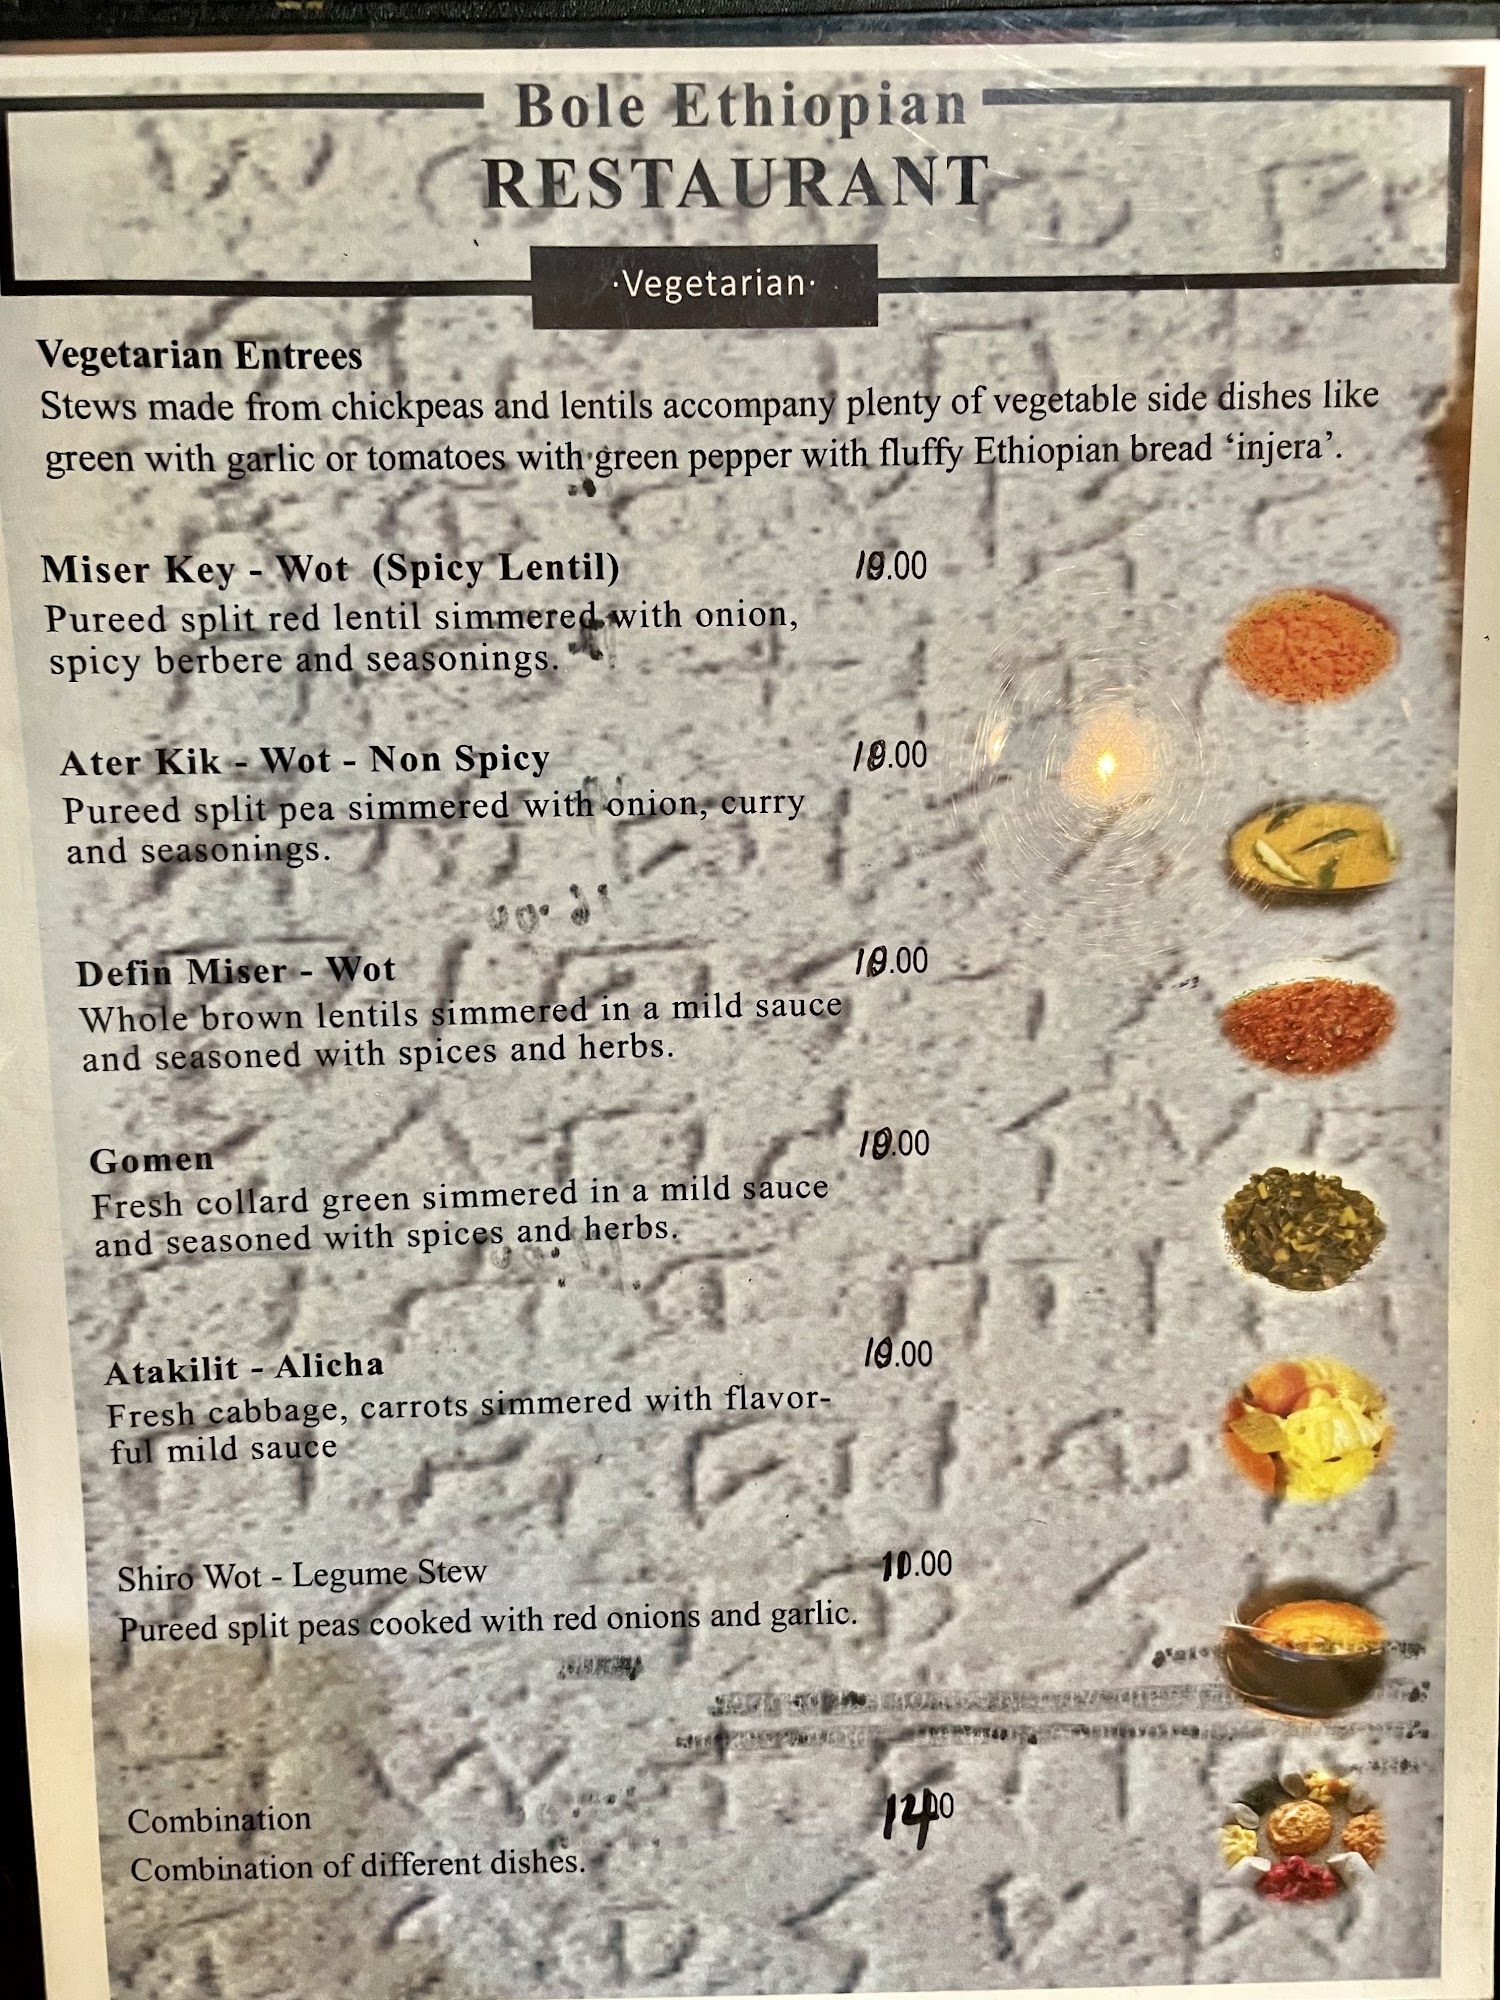 Bole Ethiopian
RESTAURANT
·Vegetarian·
Vegetarian Entrees
Stews made from chickpeas and lentils accompany plenty of vegetable side dishes like
green with garlic or tomatoes with green pepper with fluffy Ethiopian bread ‘injera’.
Miser Key - Wot (Spicy Lentil) 10.00
Pureed split red lentil simmered with onion,
spicy berbere and seasonings.
Ater Kik - Wot - Non Spicy 10.00
Pureed split pea simmered with onion, curry
and seasonings.
Defin Miser - Wot 10.00
Whole brown lentils simmered in a mild sauce
and seasoned with spices and herbs.
Gomen 10.00
Fresh collard green simmered in a mild sauce
and seasoned with spices and herbs.
Atakilit - Alicha 10.00
Fresh cabbage, carrots simmered with flavor-
ful mild sauce
Shiro Wot - Legume Stew 10.00
Pureed split peas cooked with red onions and garlic.
Combination
Combination of different dishes.